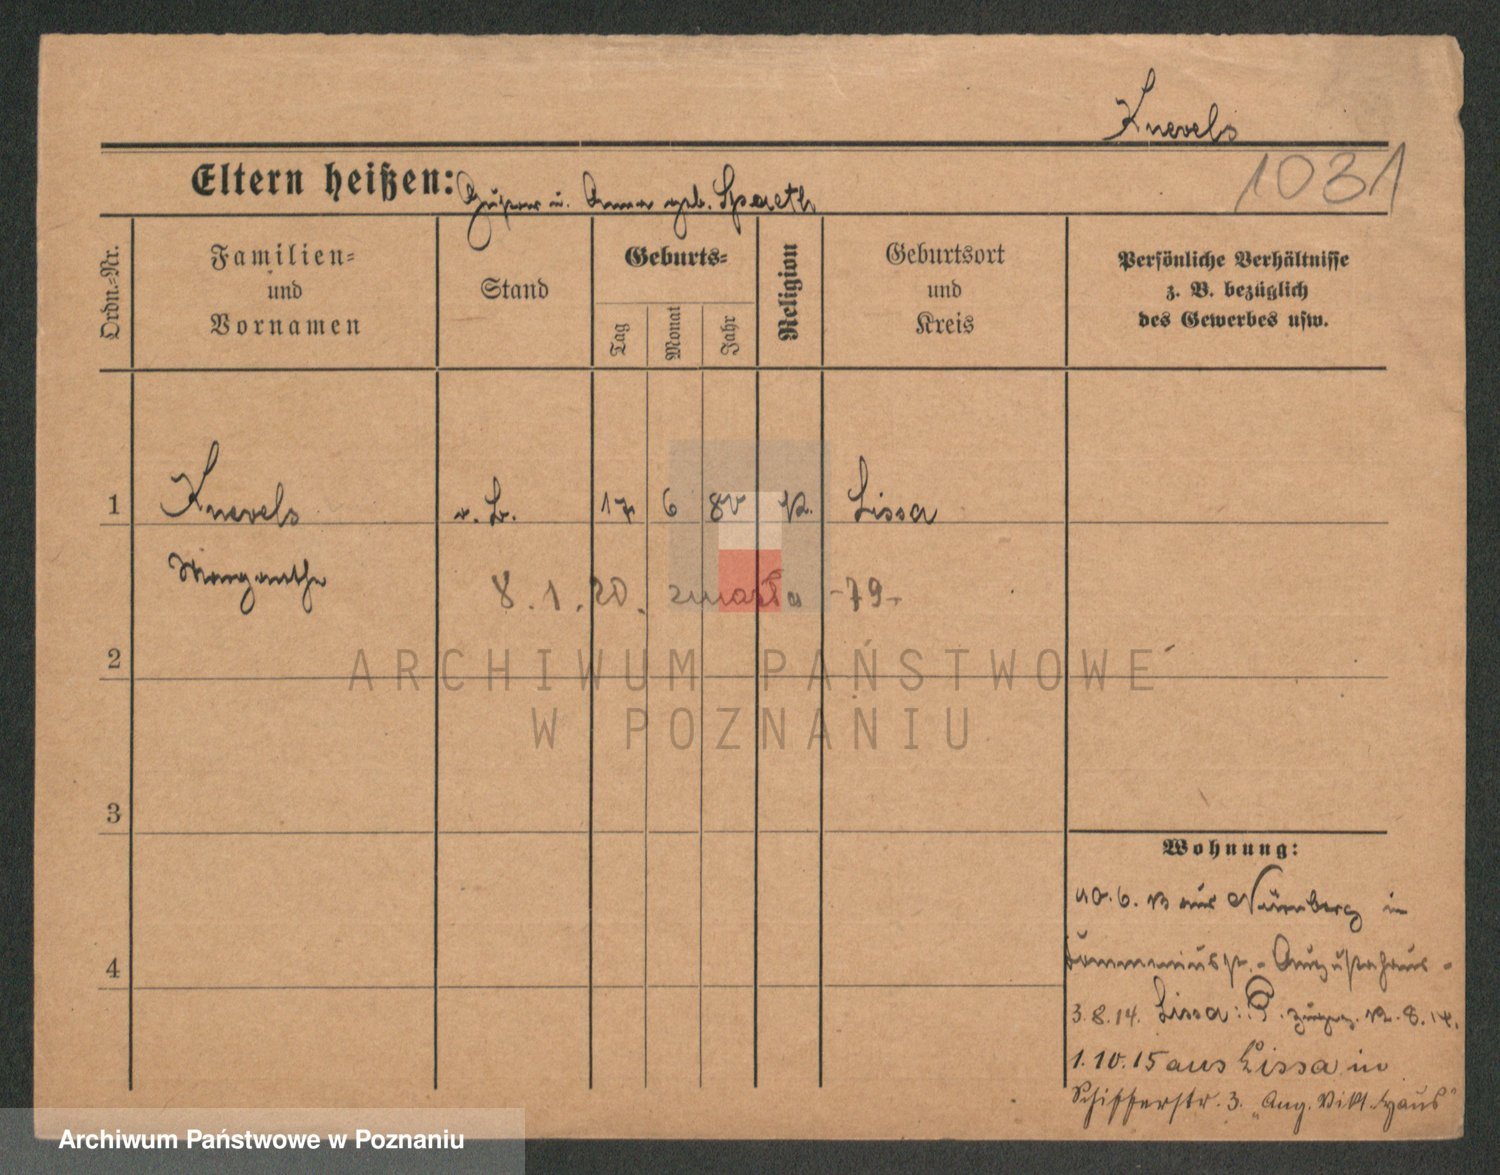 Knevels
1031
Eltern heißen: u. Anna geb. Spaeth
Ordn.-Nr.
Familien-
und
Vornamen
Stand
Geburts-
Tag
Monat
Jahr
Religion
Geburtsort
und
Kreis
Persönliche Verhältnisse
z. B. bezüglich
des Gewerbes usw.
1
Knevels
17
6
Lissa
8.1.20. zmarła -79-
2
ARCHIWUM PAŃSTWOWE
W POZNANIU
3
Wohnung:
aus Nürnberg in
4
Augustahaus -
3.8.14. Lissa:
1.10.15 aus Lissa in
Schifferstr. 3. „Aug. Vikt. Haus"
Archiwum Państwowe w Poznaniu